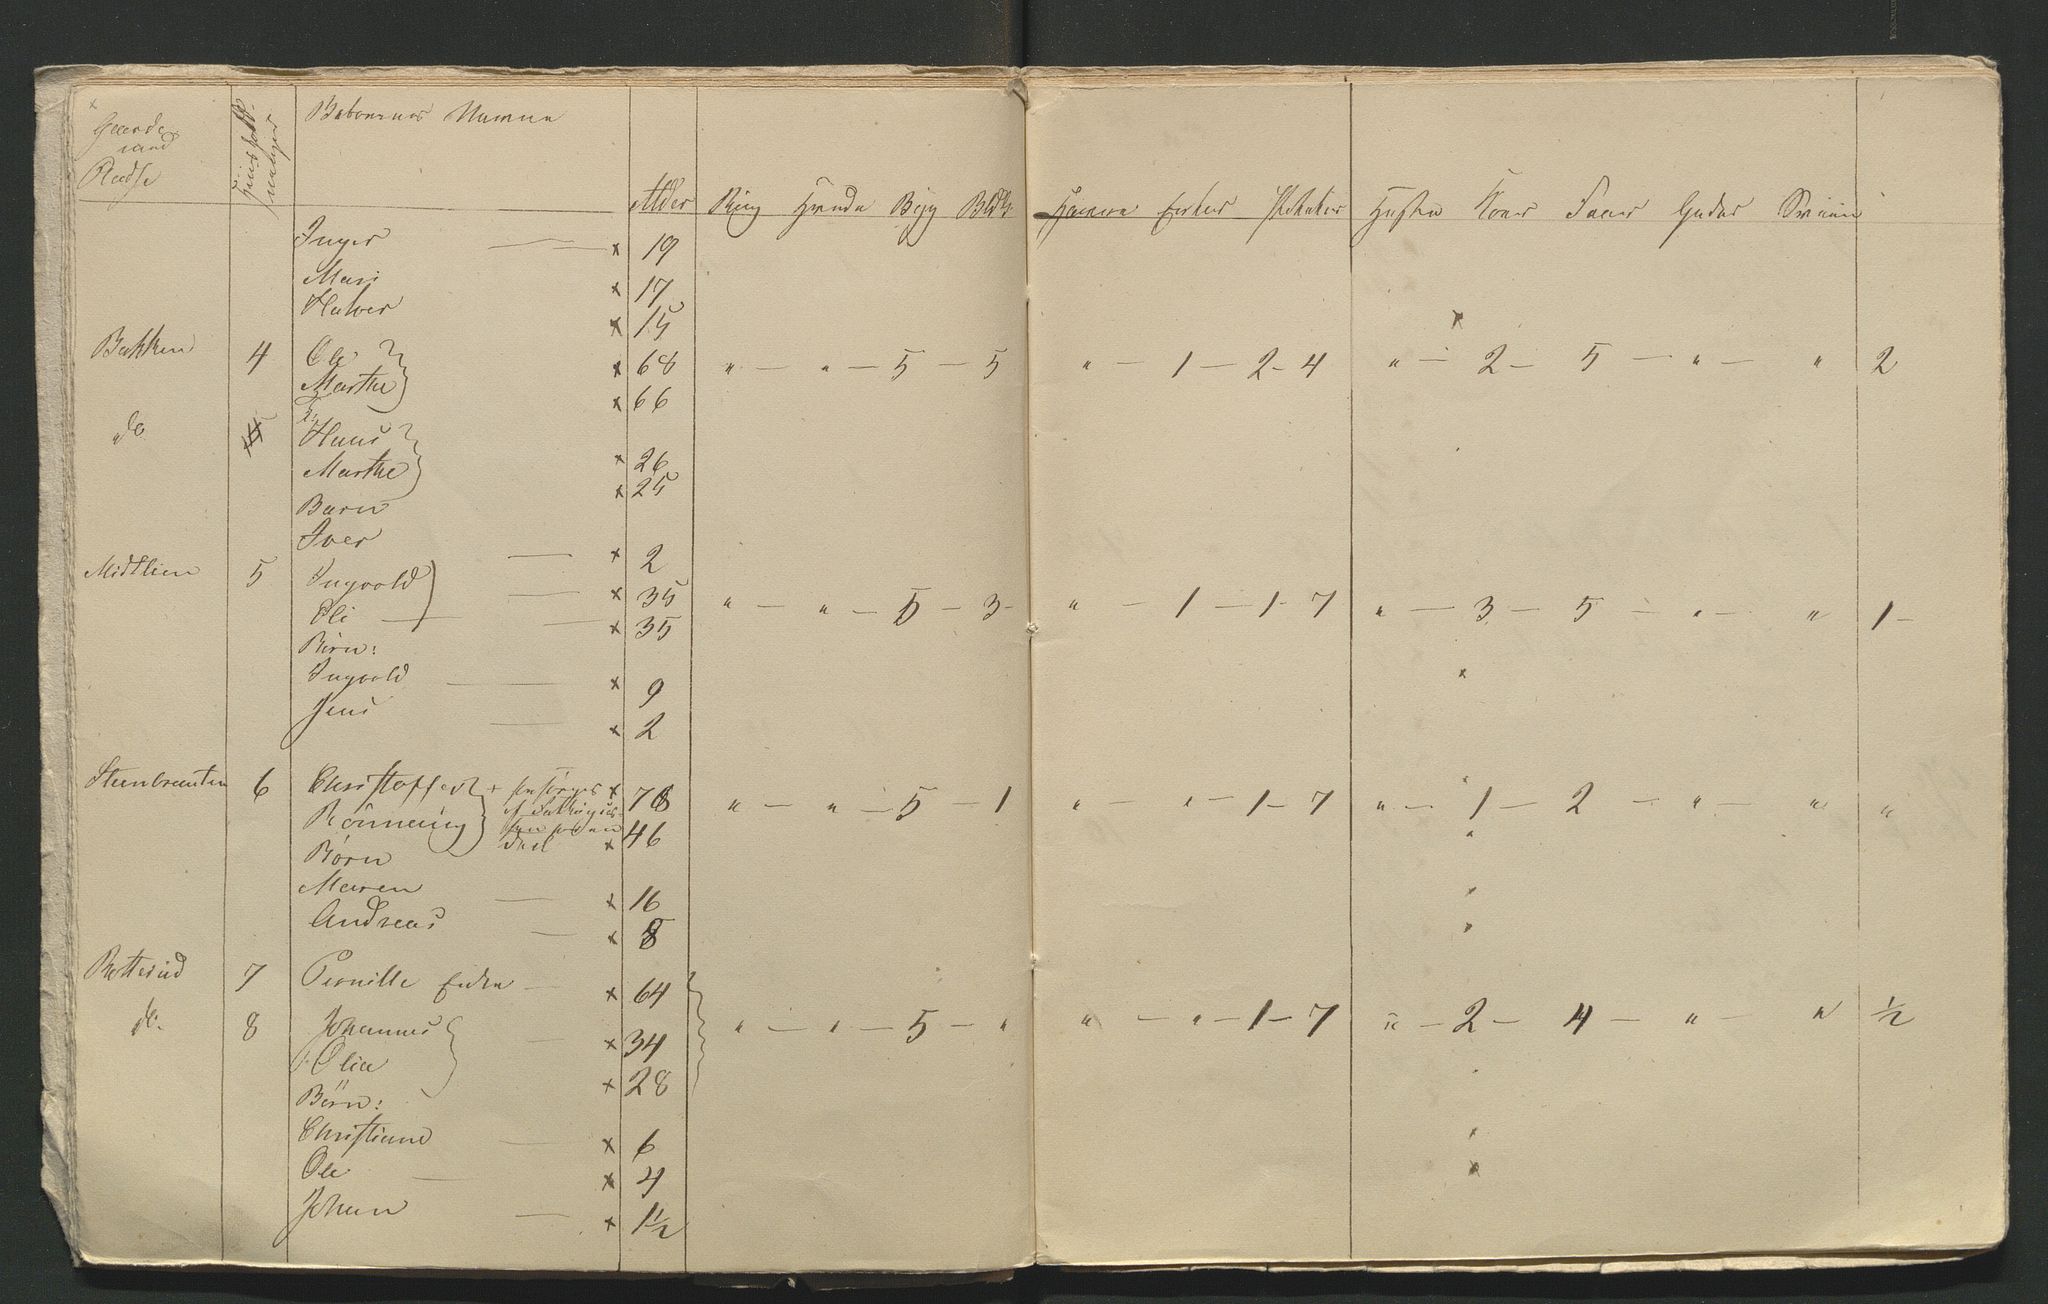 Gaarde
Beboernes Navne
Alder Rug Hvede Byg Havre Erter Heste Koer Faar Geder Sviin
Inger x 19
Mari x 17
Halvor x 15
Bakken 4 Ole x 68 " — " — 5 — 5 " — 1 — 2 - 4 " — 2 — 5 — " — " 2
Marthe x 66
do
Hans x 26
Marthe x 25
Barn
Iver x 2
Midtlien 5 Ingvold x 35 " — " — 5 — 3 - " — 1 — 1 - 7 " — 3 — 5 — " — " 1 -
Oli x 35
Börn:
Ingvold x 9
Jens x 2
Steenbraaten 6 Christoffer + x 78 " — " — 5 — 1 " — " — 1 - 7 " — 1 — 2 — " — " "
Rönnaug x 46
Börn
Maren x 16
Andreas x 8
Rotterud 7 Pernille Enke x 64
do. 8 Johannes x 34 " — " — 5 — " " — " — 1 - 7 " — 2 — 4 — " — " ½
Olia x 28
Börn:
Christiane x 6
Ole x 4
Johan x 1½